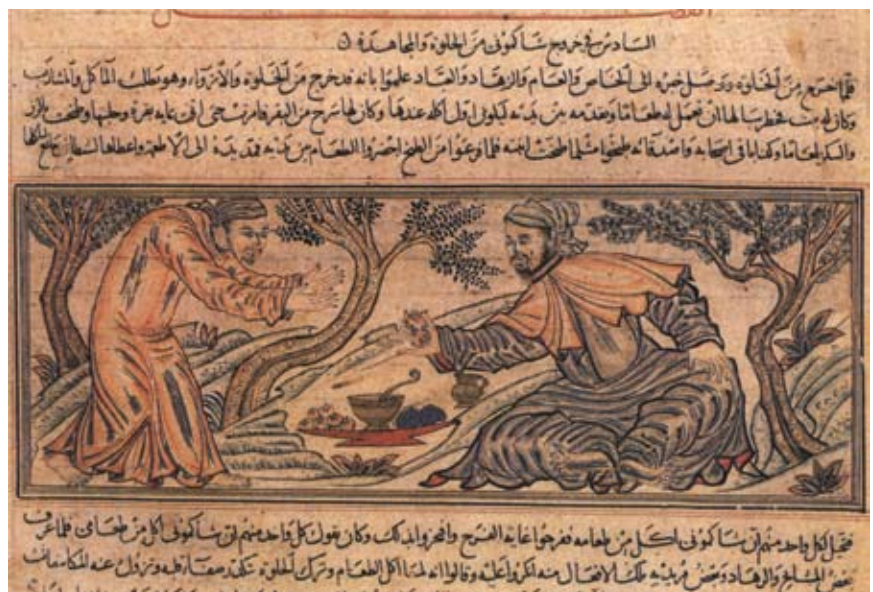 السادس في خروج شاكموني من الخلوة والمجاهدة
فلما خرج من الخلوة ووصل خبره الى الخاص والعام والزهاد والعباد علموا بانه قد خرج من الخلوة والانزواء وهو يطلب المآكل والمشارب
وكان له بنت فخطر ببالها ان تعمل له طعاما وتقدمه بين يديه ليكون اول اكله عندها وكان لها سرح من البقر فامرت حتى اتى بقرة وحلبها وطبخت بالارز
والسكر طعاما وكذا باقي اصحابه واصدقائه طبخوا مثلما طبخت ابنته فلما فرغوا من الطبخ احضروا الطعام بين يديه فمد يده الى الاطعمة
فتخيل لكل واحد منهم ان شاكموني اكل من طعامه ففرحوا غاية الفرح وافتخروا بذلك وكان يقول كل واحد منهم ان شاكموني اكل من طعامي فلما عرف
بعض المشايخ والزهاد وبعض مريديه تلك الافعال منه انكروا عليه وقالوا انه لما اكل الطعام وترك الخلوة تكدر صفاء قلبه وتزول عنه المكاشفات